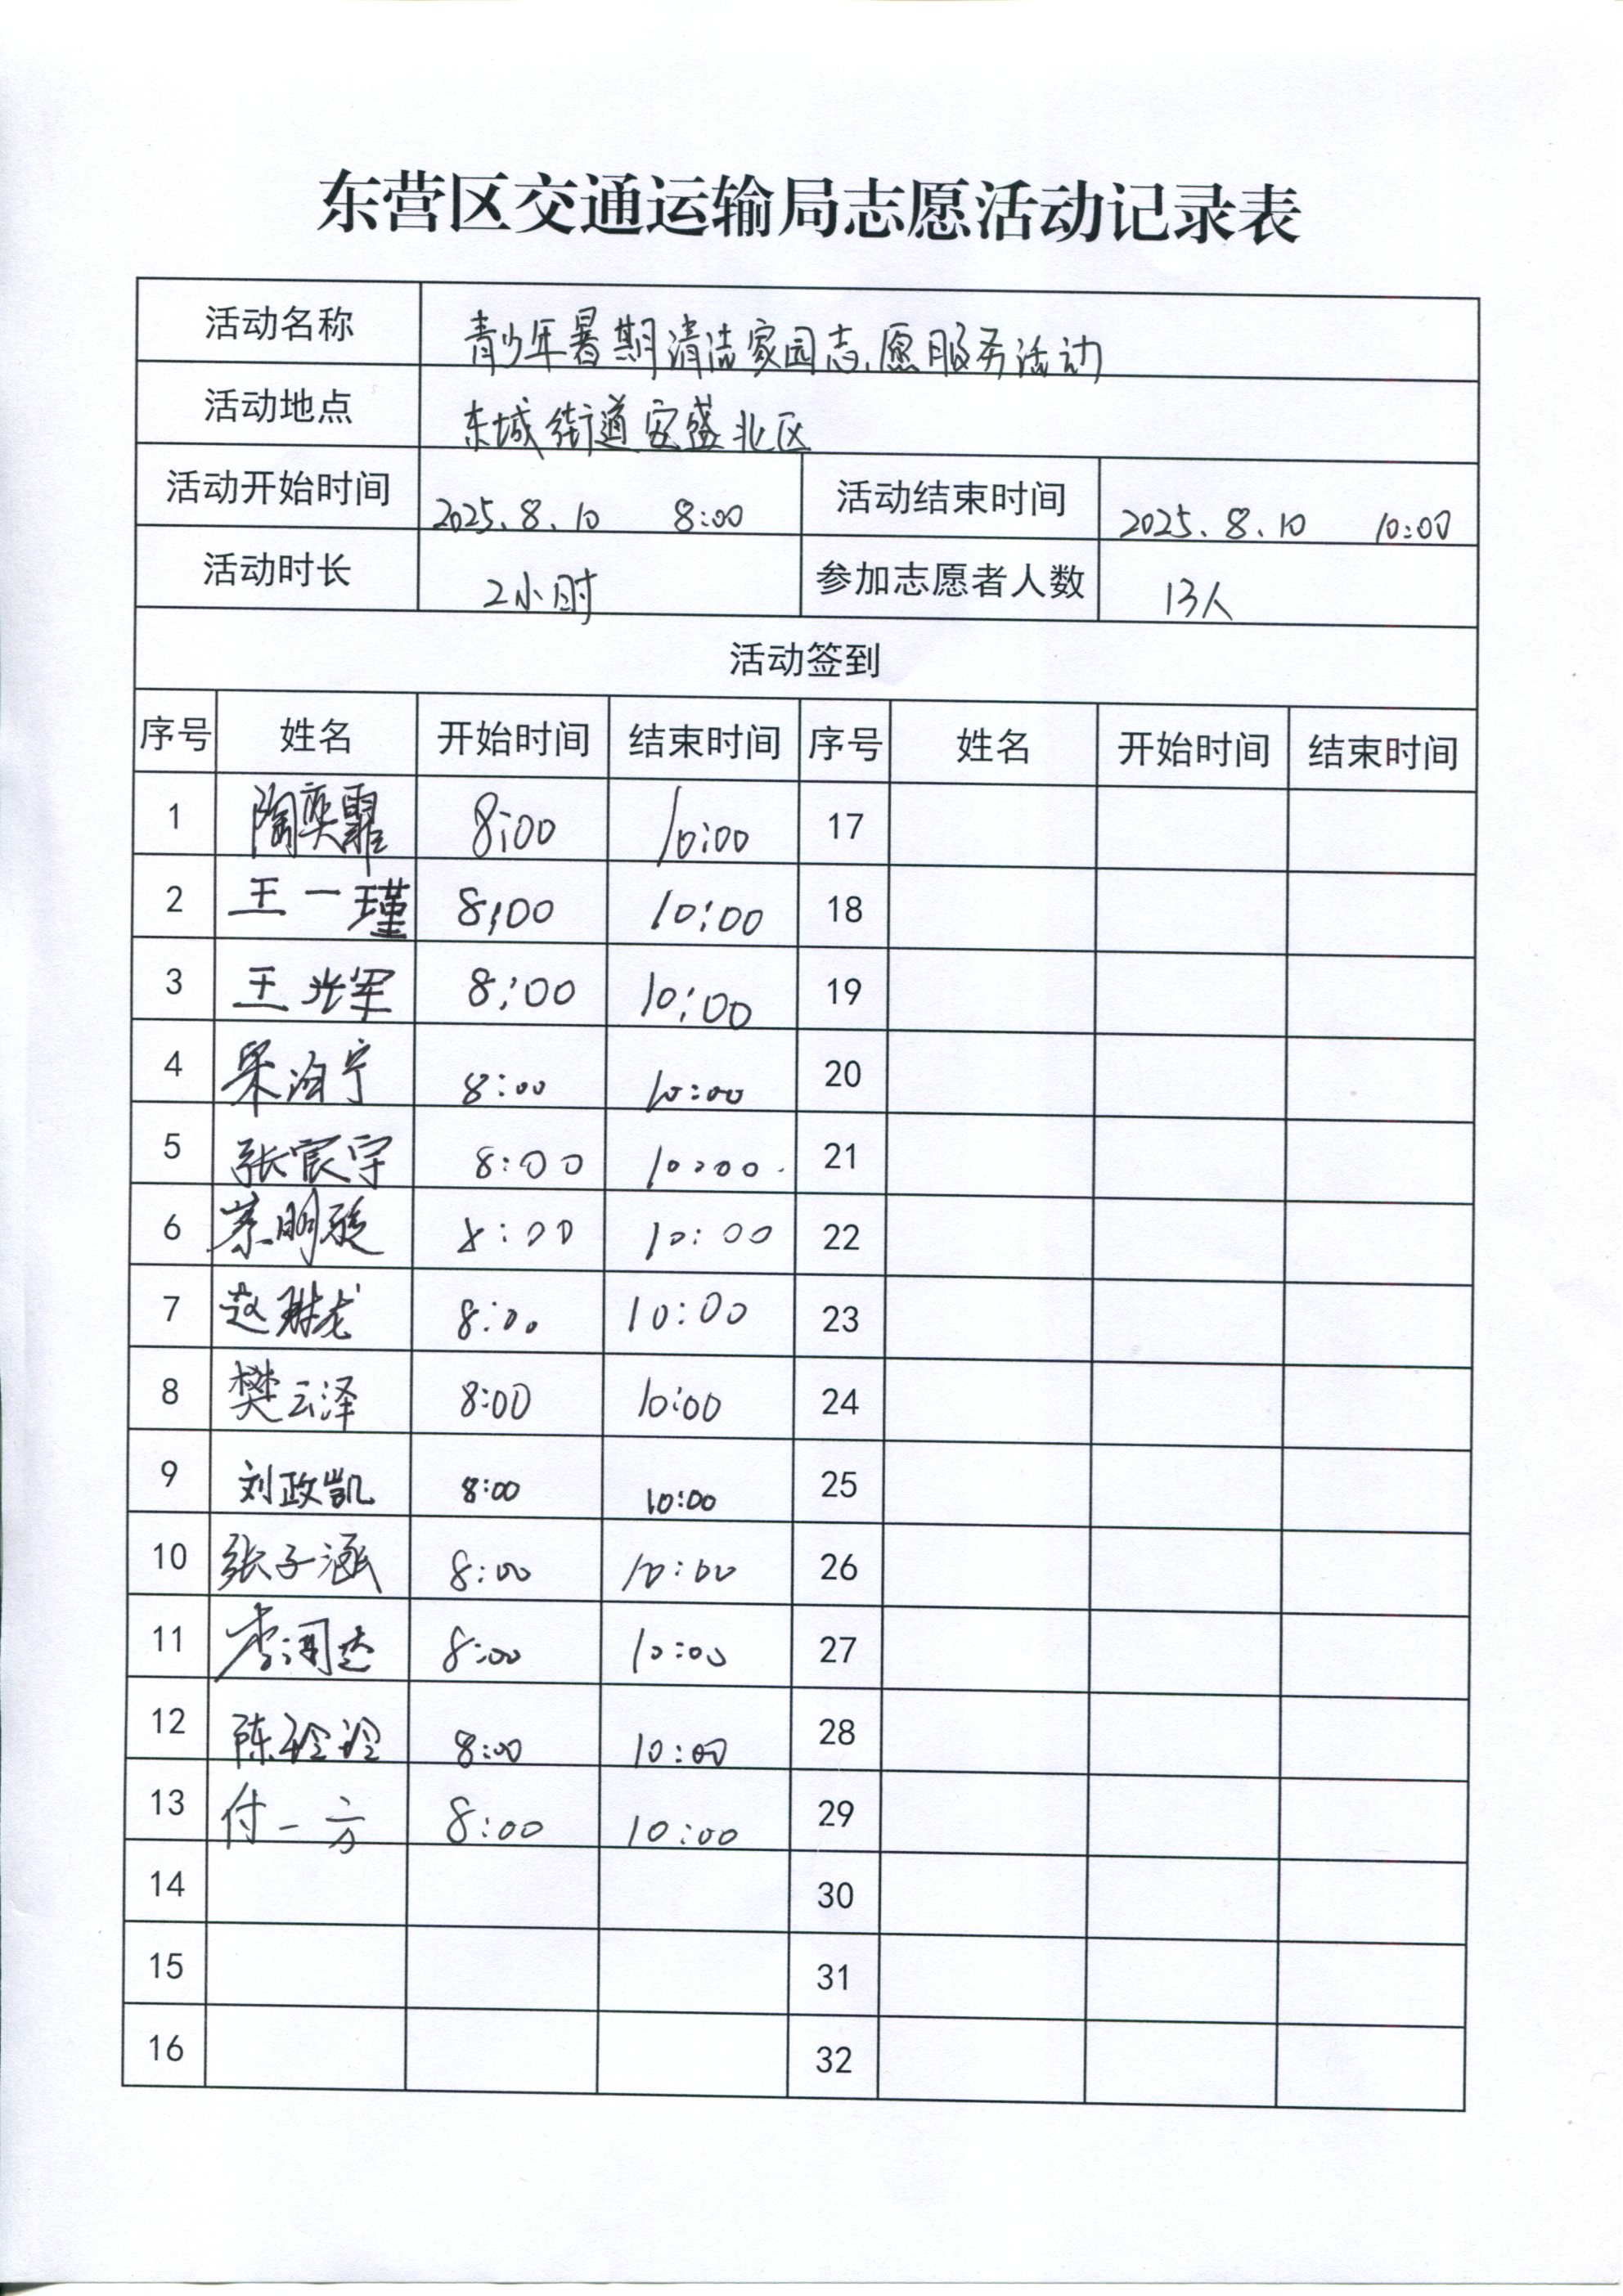 东营区交通运输局志愿活动记录表
活动名称 青少年暑期清洁家园志愿服务活动
活动地点 东城街道安盛北区
活动开始时间 2025.8.10 8:00 活动结束时间 2025.8.10 10:00
活动时长 2小时 参加志愿者人数 13人
活动签到
序号 姓名 开始时间 结束时间 序号 姓名 开始时间 结束时间
1 陶奕霏 8:00 10:00 17
2 王一瑾 8:00 10:00 18
3 王光军 8:00 10:00 19
4 8:00 10:00 20
5 张宸宇 8:00 10:00 21
6 8:00 10:00 22
7 8:00 10:00 23
8 樊云泽 8:00 10:00 24
9 刘政凯 8:00 10:00 25
10 张子涵 8:00 10:00 26
11 李润达 8:00 10:00 27
12 陈玲玲 8:00 10:00 28
13 付一方 8:00 10:00 29
14 30
15 31
16 32